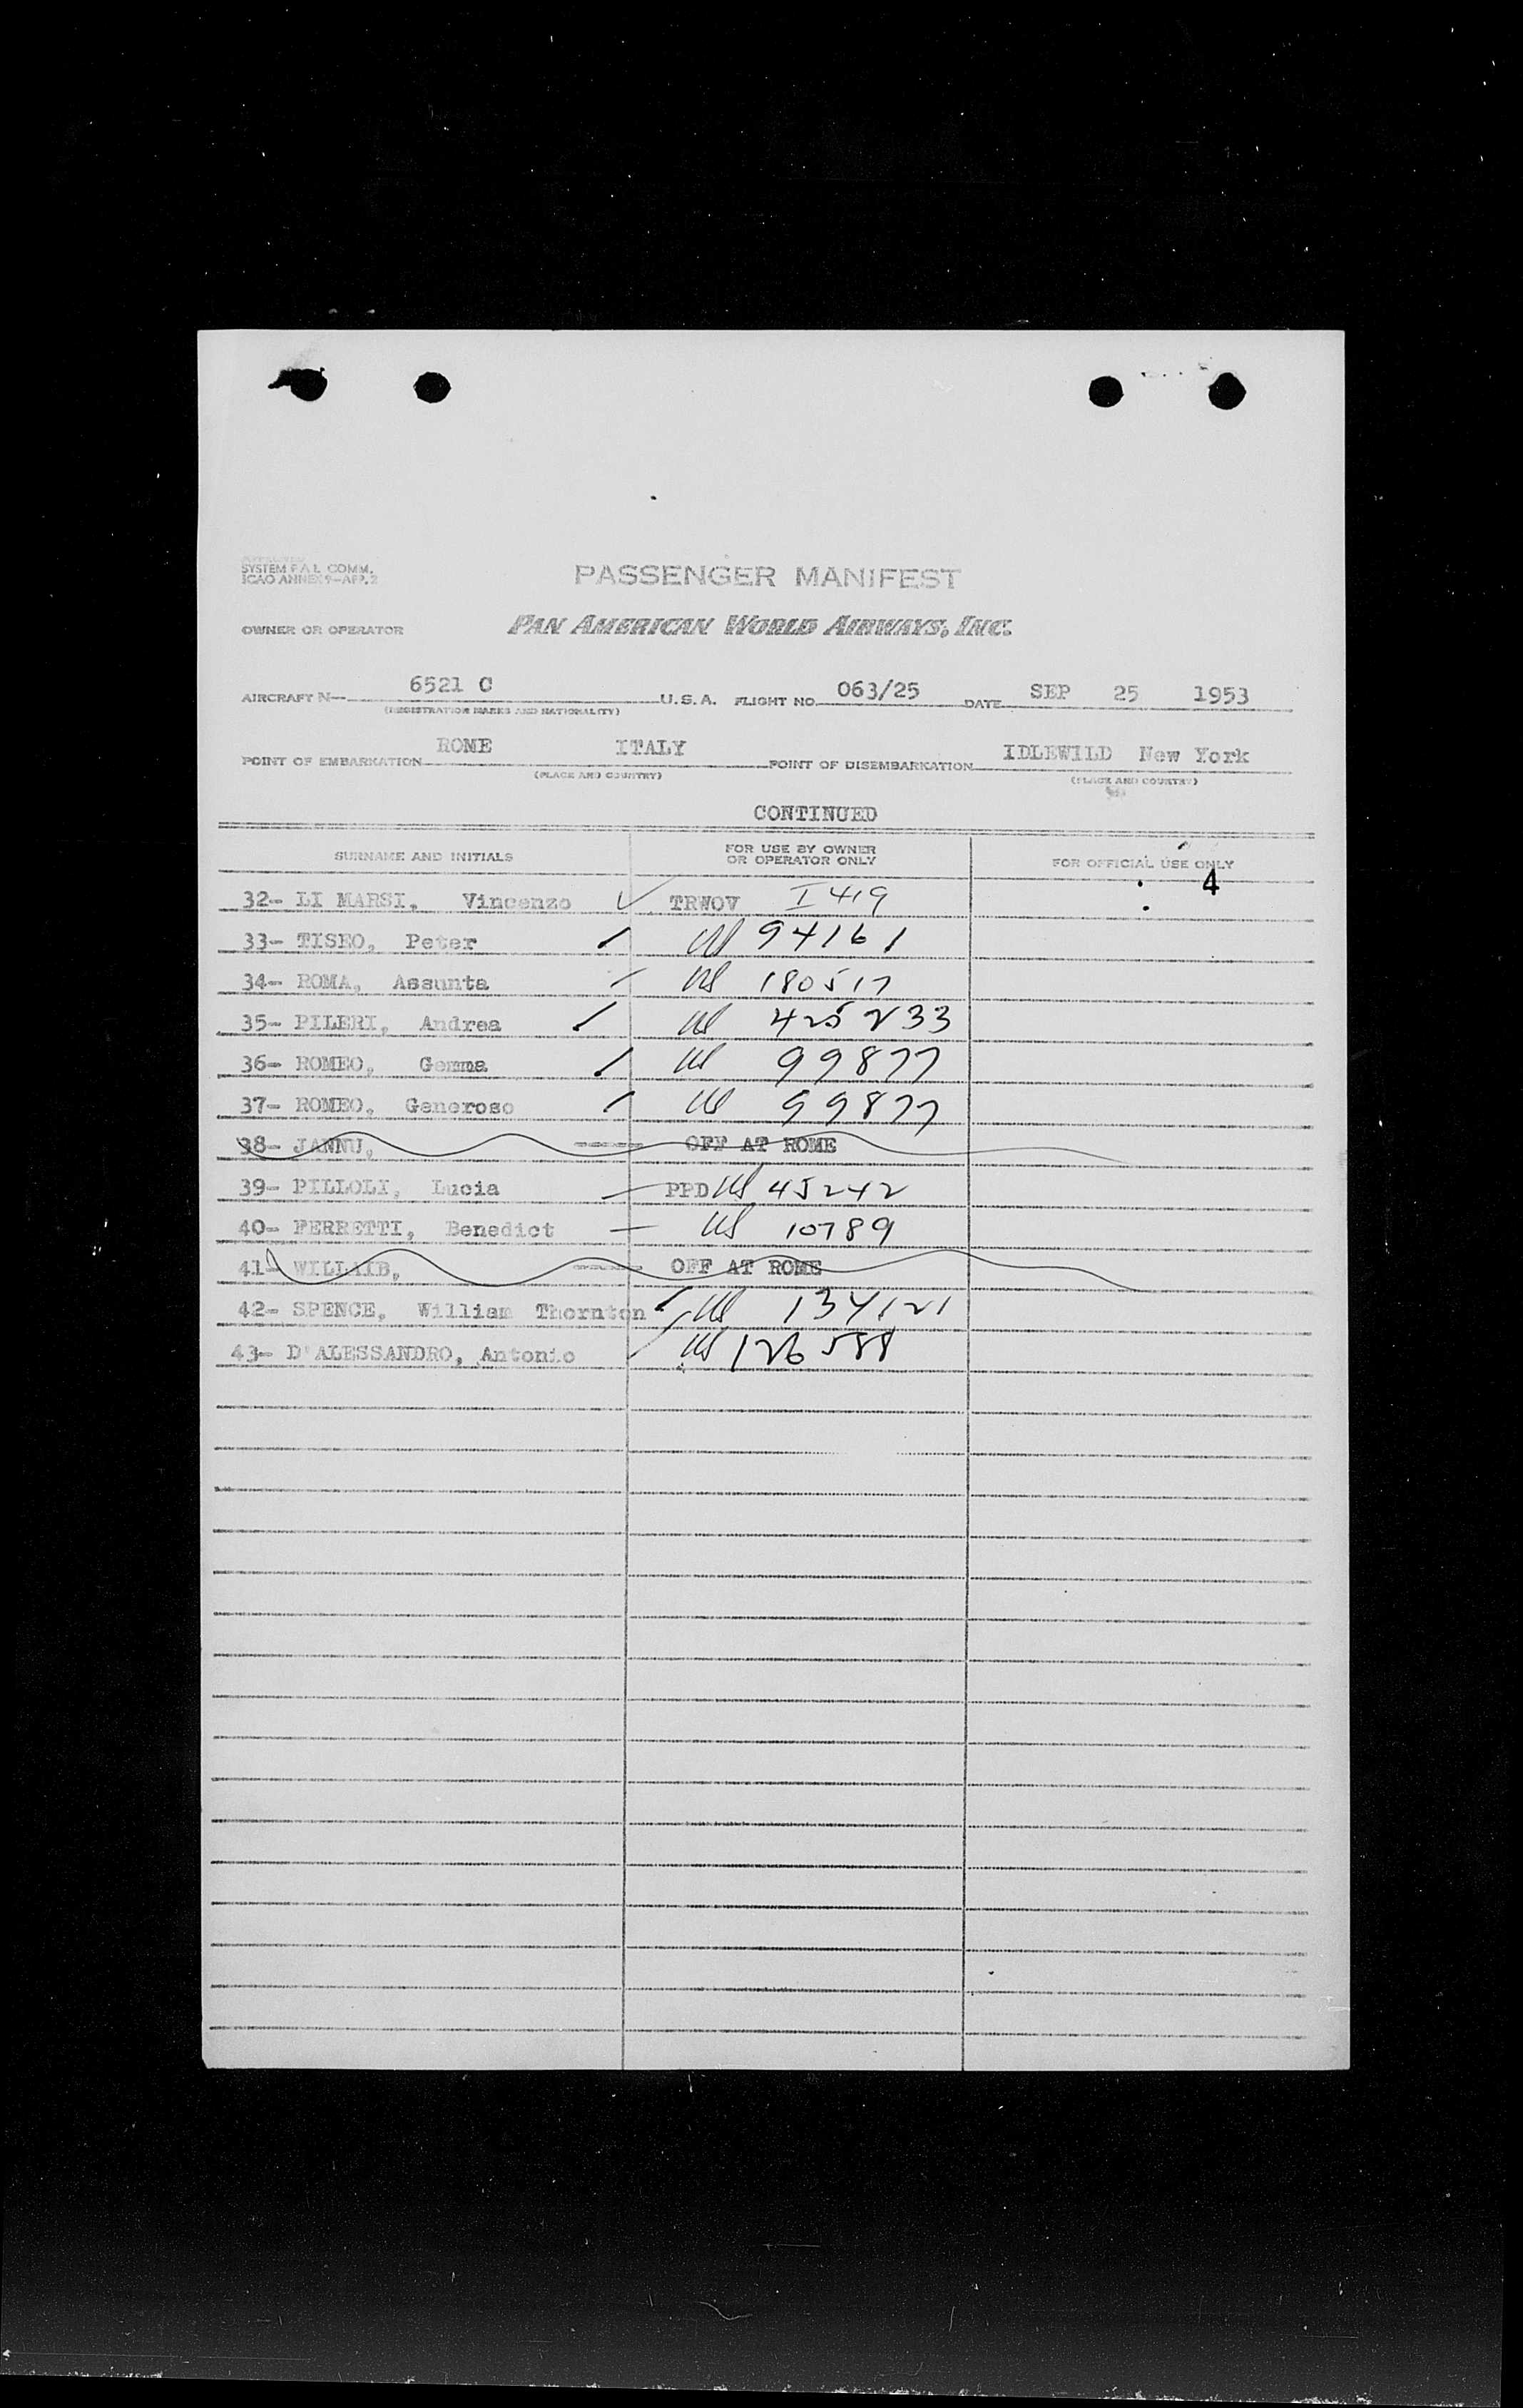 SYSTEM F.A.L. COMM.
ICAO ANNEX 9-APP. 2
PASSENGER MANIFEST
OWNER OR OPERATOR PAN AMERICAN WORLD AIRWAYS, INC.
AIRCRAFT N- 6521 C U.S.A. FLIGHT NO. 063/25 DATE SEP 25 1953
(REGISTRATION MARKS AND NATIONALITY)
POINT OF EMBARKATION ROME ITALY POINT OF DISEMBARKATION IDLEWILD New York
(PLACE AND COUNTRY) (PLACE AND COUNTRY)
CONTINUED
SURNAME AND INITIALS FOR USE BY OWNER OR OPERATOR ONLY FOR OFFICIAL USE ONLY
4
32- LI MARSI, Vincenzo ✓ TRWOV I 419
33- TISEO, Peter / US 94161
34- ROMA, Assunta / US 180517
35- PILERI, Andrea / US 425233
36- ROMEO, Gemma / US 99877
37- ROMEO, Generoso / US 99877
38- JANNU, ----- OFF AT ROME
39- PILLOLI, Lucia - PPD US 45242
40- FERRETTI, Benedict - US 10789
41- WILLAIB, ----- OFF AT ROME
42- SPENCE, William Thornton / US 134121
43- D'ALESSANDRO, Antonio / US 126588